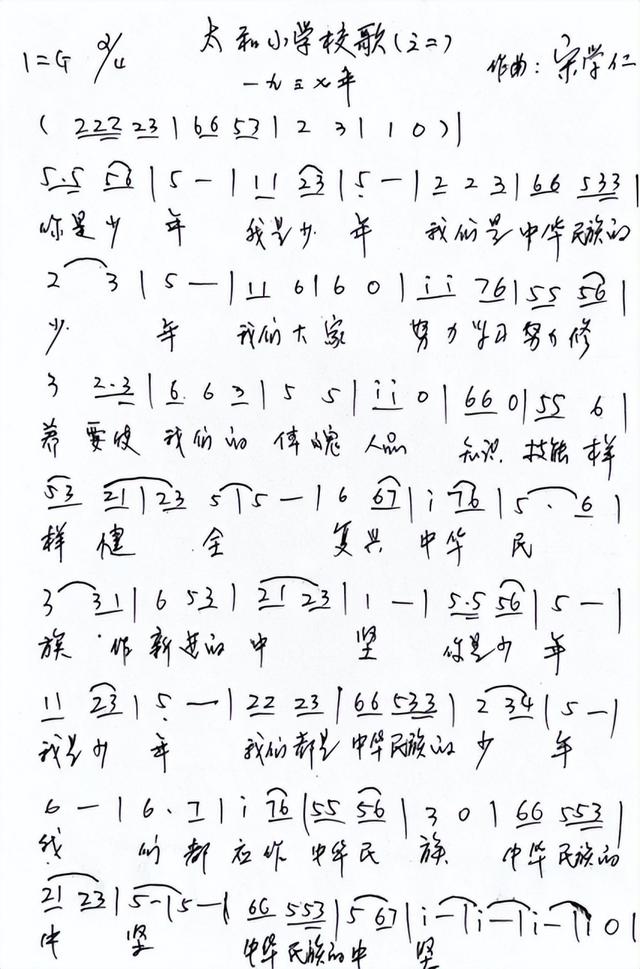 太和小学校歌(之二)
1=G 2/4
作曲:宋学仁
一九三七年
( 222 23 | 66 53 | 2 3 | 1 1 0 ) |
5·5 56 | 5 — | 11 23 | 5 — | 2 2 3 | 66 533 |
你是少 年 我是少 年 我们是 中华民族的
2 3 | 5 — | 11 6 | 6 0 | i i 76 | 55 56 |
少 年 我们大家 努力学习努力修
3 2·3 | 6 6 3 | 5 5 | i i 0 | 66 0 | 55 6 |
养 要使 我们的 体魄 人品 知识 技能 样
53 21 | 23 5 | 5 — | 6 67 | i 76 | 5 · 6 |
样 健 全 复兴 中华 民
3 31 | 6 53 | 21 23 | 1 — | 5·5 56 | 5 — |
族 作新进的中 坚 你是少 年
11 23 | 5 — | 22 23 | 66 533 | 2 34 | 5 — |
我是少 年 我们都是 中华民族的 少 年
6 — | 6 · 7 | i 76 | 55 56 | 3 0 | 66 553 |
我 们 都 应作 中华民 族 中华民族的
21 23 | 5 — | 5 — | 66 553 | 5 67 | i — | i — | i — | i 0 |
中 坚 中华民族的中 坚